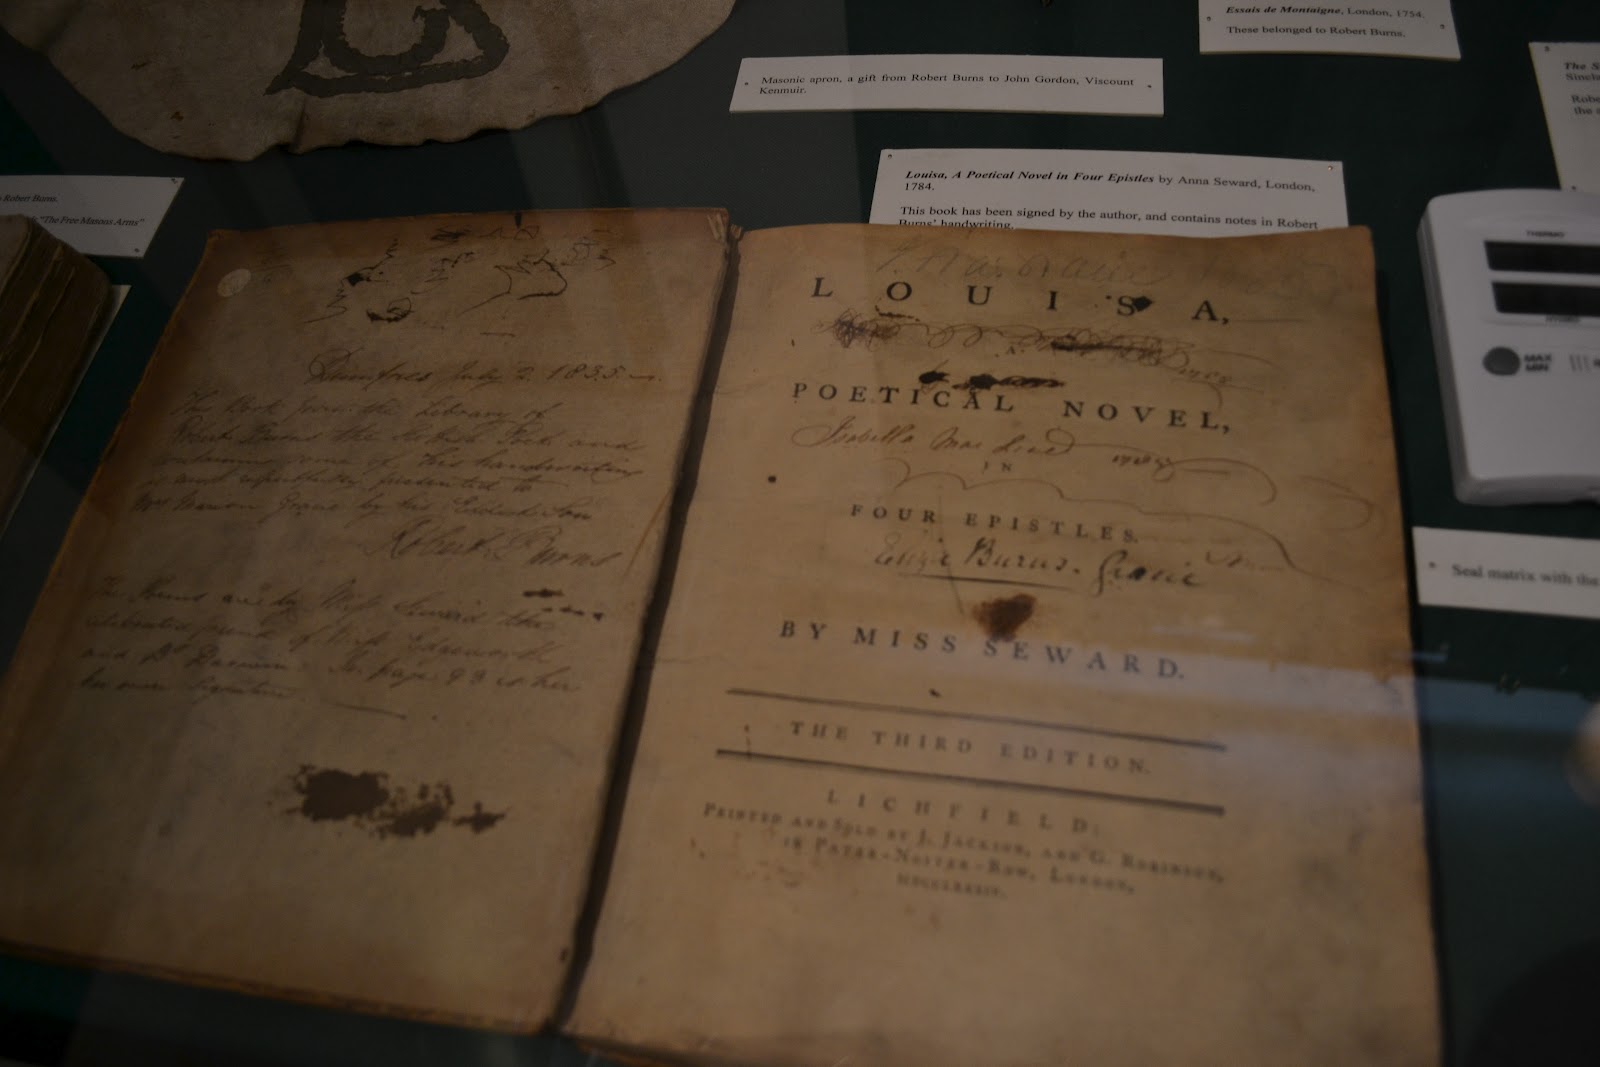 Essais de Montaigne, London, 1754.
These belonged to Robert Burns.
Masonic apron, a gift from Robert Burns to John Gordon, Viscount
Kenmuir.
The S
Sincla
Robe
the a
Robert Burns.
"The Free Masons Arms"
Louisa, A Poetical Novel in Four Epistles by Anna Seward, London,
1784.
This book has been signed by the author, and contains notes in Robert
Burns' handwriting.
THERMO
HYGRO
MAX
MIN
Seal matrix with the
Dumfries July 2. 1835
This Book from the Library of
Robert Burns the Scotish Poet and
containing some of his handwriting
is most respectfully presented to
Mrs Marion Gracie by his Eldest Son
Robert Burns
The Poems are by Miss Seward the
celebrated friend of Miss Edgeworth
and Dr Darwin. In page 93 is her
her own signature
LOUISA,
A
POETICAL NOVEL,
Isabella Mac
IN
FOUR EPISTLES.
Burns. Gracie
BY MISS SEWARD.
THE THIRD EDITION.
LICHFIELD:
PRINTED AND SOLD BY J. JACKSON, AND G. ROBINSON,
IN PATER-NOSTER-ROW, LONDON,
MDCCLXXXIV.